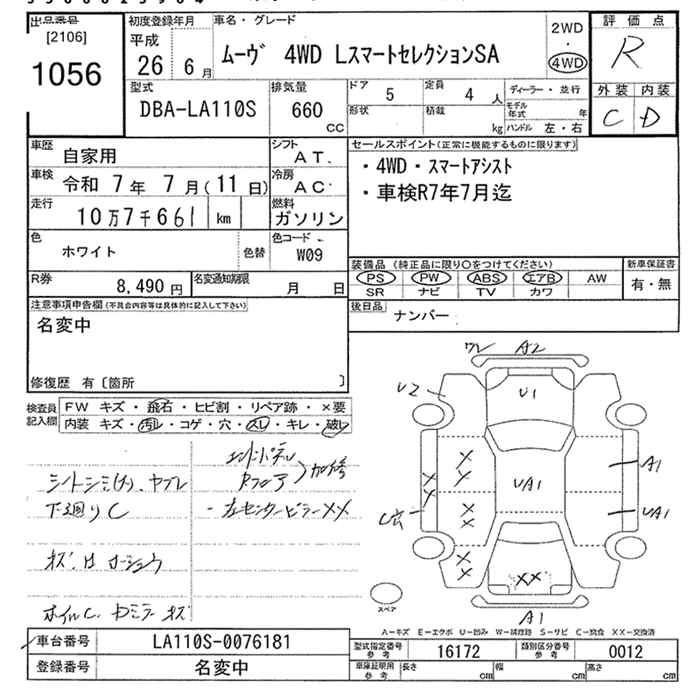 出品番号
[2106]
1056
初度登録年月
平成
26 6月
車名・グレード
ムーヴ 4WD LスマートセレクションSA
2WD
・
4WD
評価点
R
外装 内装
C D
型式
DBA-LA110S
排気量
660
CC
ドア 5
形状
定員 4 人
積載 kg
ディーラー・並行
モデル年式 年
ハンドル 左・右
車歴 自家用
シフト AT.
車検 令和 7年 7月(11日)
冷房 AC
走行 10万7千661 km
燃料 ガソリン
色 ホワイト 色替
色コード W09
R券 8,490円
名変通知期限 月 日
注意事項申告欄(不具合内容等は具体的に記入して下さい)
名変中
修復歴 有〔箇所 〕
セールスポイント(正常に機能するものに限ります)
・4WD・スマートアシスト
・車検R7年7月迄
装備品(純正品に限り○をつけてください)
PS PW ABS エアB AW
SR ナビ TV カワ
新車保証書
有・無
後日品 ナンバー
検査員記入欄
FW キズ・飛石・ヒビ割・リペア跡・×要
内装 キズ・汚レ・コゲ・穴・スレ・キレ・破レ
シートシミ(大)、ヤブレ
下廻りC
エンドパネル
Rフロア
加修
・左センターピラーXX
ホイルC
ワレ A2
U2
U1
A1
UA1
UA1
A1
XX
スペア
A−キズ E−エクボ U−凹み W−補修跡 S−サビ C−腐食 XX−交換済
車台番号 LA110S-0076181
登録番号 名変中
型式指定番号 参考 16172
類別区分番号 参考 0012
車庫証明用 参考 長さ cm 幅 cm 高さ cm